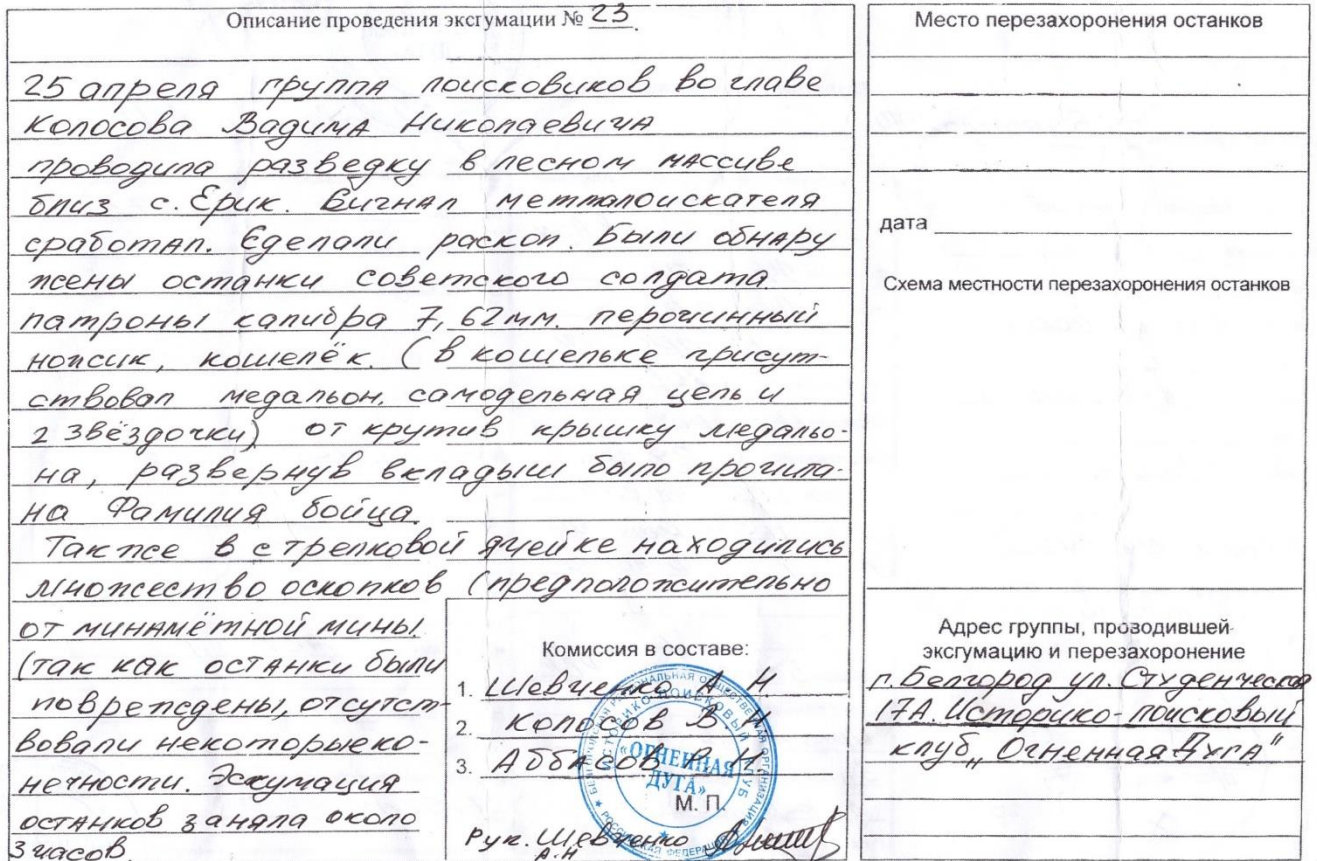 Описание проведения эксгумации № 23.
25 апреля группа поисковиков во главе
Колосова Вадима Николаевича
проводила разведку в лесном массиве
близ с. Ерик. Сигнал метталоискателя
сработал. Сделали раскоп. Были обнару
жены останки советского солдата
патроны калибра 7,62мм. перочинный
ножик, кошелёк. (в кошельке присут-
ствовал медальон. самодельная цепь и
2 звёздочки) открутив крышку медальо-
на, развернув вкладыш было прочита-
на Фамилия бойца.
Также в стрелковой ячейке находились
множество осколков (предположительно
от минамётной мины.
(так как останки были
повреждены, отсутст-
вовали некоторые ко-
нечности. Эсгумация
останков заняла около
3 часов.
Комиссия в составе:
1. Шевченко А Н
2. Колосов В Н
3. Аббасов
М. П.
Рук. Шевченко
А.Н
ИСТОРИКО-ПОИСКОВЫЙ КЛУБ
«ОГНЕННАЯ
ДУГА»
Место перезахоронения останков
дата
Схема местности перезахоронения останков
Адрес группы, проводившей
эксгумацию и перезахоронение
г. Белгород ул. Студенческая
17А. Историко-поисковый
клуб „Огненная Дуга"